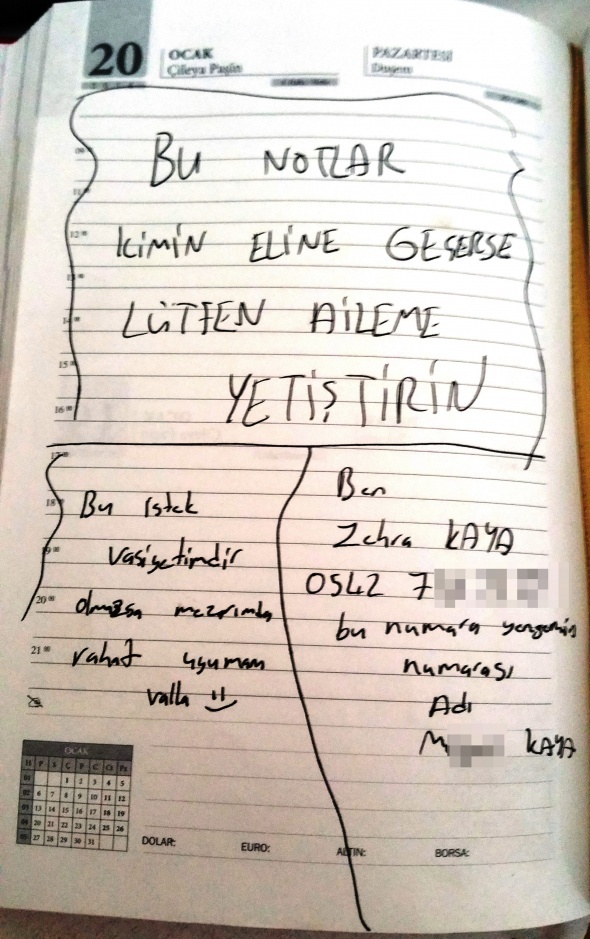 20 OCAK PAZARTESİ
Çileya Paşîn Duşem
BU NOTLAR
KİMİN ELİNE GEÇERSE
LÜTFEN AİLEME
YETİŞTİRİN
Bu istek
vasiyetimdir
olmazsa mezarımda
rahat uyumam
valla
Ben
Zehra KAYA
0542 7
bu numara yengemin
numarası
Adı
M KAYA
12 00
13 00
14 00
15 00
16 00
17 00
18 00
19 00
20 00
21 00
OCAK
H P S Ç P C Ct Pz
01 1 2 3 4 5
02 6 7 8 9 10 11 12
03 13 14 15 16 17 18 19
04 20 21 22 23 24 25 26
05 27 28 29 30 31
DOLAR: EURO: ALTIN: BORSA: